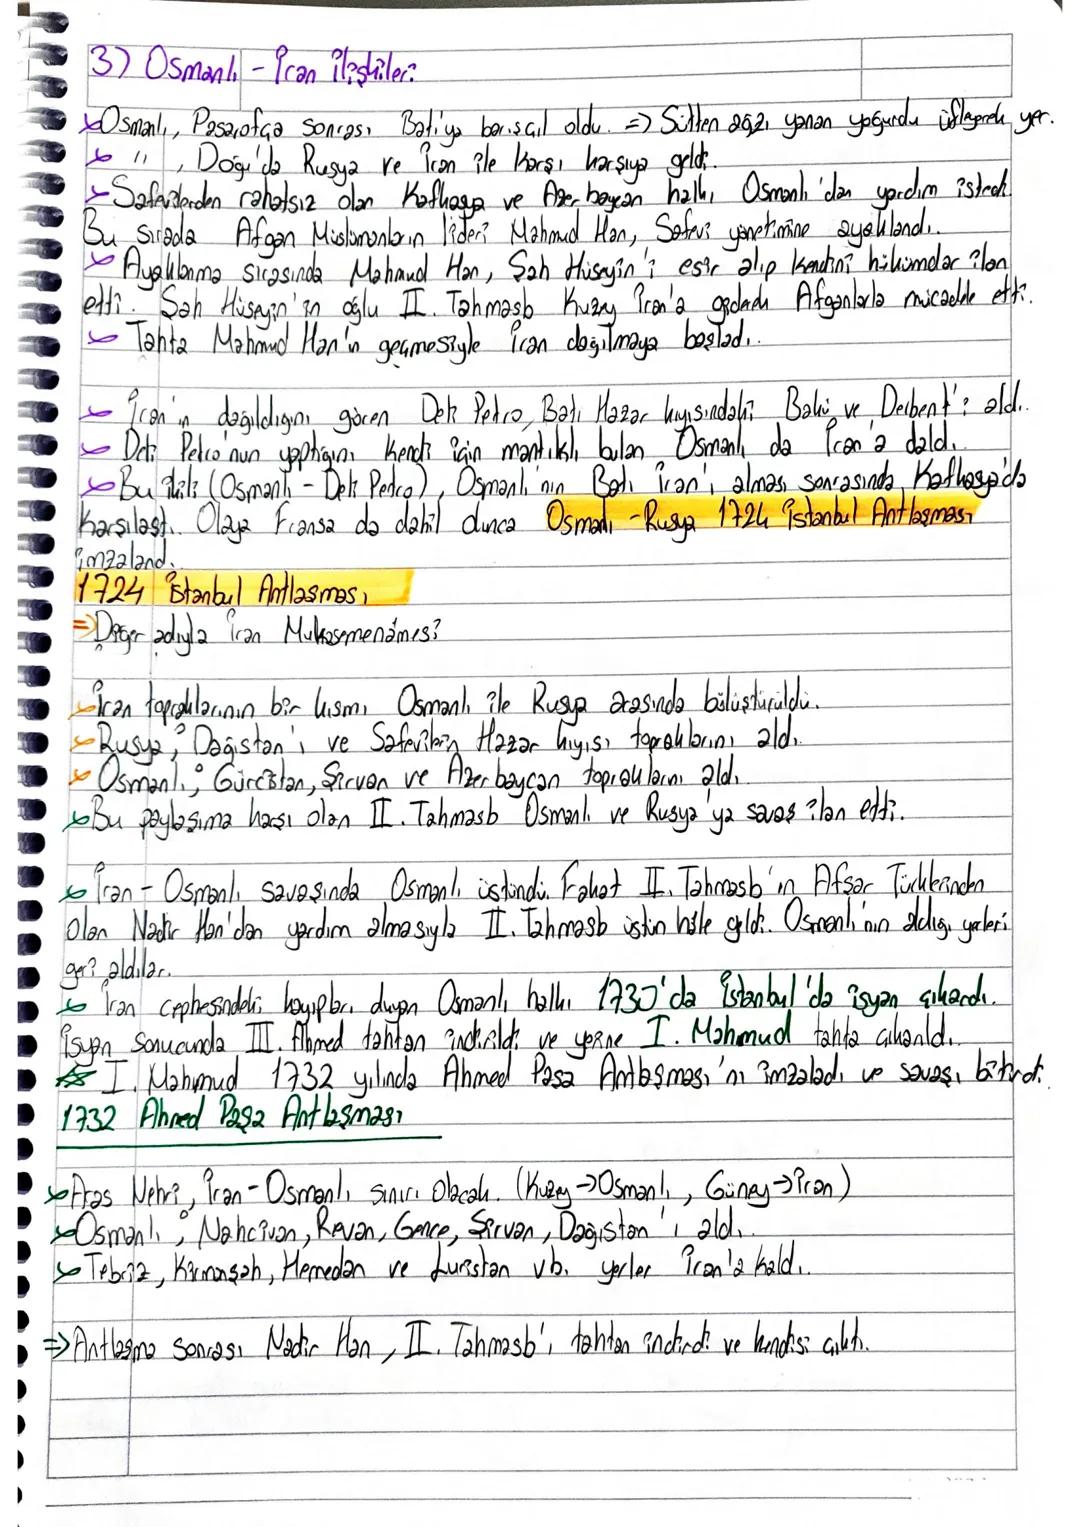 3) Osmanlı - İran ilişkileri
Osmanlı, Pasarofça sonrası Batı'ya barışçıl oldu. => Sütten ağzı yanan yoğurdu üfleyerek yer.
" , Doğu'da Rusya ve İran ile karşı karşıya geldi.
Safevilerden rahatsız olan Kafkasya ve Azerbaycan halkı Osmanlı'dan yardım istedi.
Bu sırada Afgan Müslümanların lideri Mahmud Han, Safevi yönetimine ayaklandı.
Ayaklanma sırasında Mahmud Han, Şah Hüseyin'i esir alıp kendini hükümdar ilan
etti. Şah Hüseyin'in oğlu II. Tahmasb Kuzey İran'a giderek Afganlarla mücadele etti.
Tahta Mahmud Han'ın geçmesiyle İran dağılmaya başladı.
İran'ın dağıldığını gören Deli Petro, Batı Hazar kıyısındaki Bakü ve Derbent'i aldı.
Deli Petro'nun yaptığını kendi için mantıklı bulan Osmanlı da İran'a daldı.
Bu ikili (Osmanlı - Deli Petro), Osmanlı'nın Batı İran'ı alması sonrasında Kafkasya'da
karşılaştı. Olaya Fransa da dahil olunca Osmanlı - Rusya 1724 İstanbul Antlaşması
imzalandı.
1724 İstanbul Antlaşması
=> Diğer adıyla İran Mukasemenamesi
İran topraklarının bir kısmı Osmanlı ile Rusya arasında bölüştürüldü.
Rusya; Dağıstan'ı ve Safevilerin Hazar kıyısı topraklarını aldı.
Osmanlı; Gürcistan, Şirvan ve Azerbaycan topraklarını aldı.
Bu paylaşıma karşı olan II. Tahmasb Osmanlı ve Rusya'ya savaş ilan etti.
İran - Osmanlı savaşında Osmanlı üstündü. Fakat II. Tahmasb'ın Afşar Türklerinden
olan Nadir Han'dan yardım almasıyla II. Tahmasb üstün hâle geldi. Osmanlı'nın aldığı yerleri
geri aldılar.
İran cephesindeki kayıpları duyan Osmanlı halkı 1730'da İstanbul'da isyan çıkardı.
İsyan sonucunda III. Ahmed tahtan indirildi ve yerine I. Mahmud tahta çıkarıldı.
I. Mahmud 1732 yılında Ahmed Paşa Antlaşması'nı imzaladı ve savaşı bitirdi.
1732 Ahmed Paşa Antlaşması
Aras Nehri, İran-Osmanlı sınırı olacak. (Kuzey -> Osmanlı, Güney -> İran)
Osmanlı; Nahcivan, Revan, Gence, Şirvan, Dağıstan'ı aldı.
Tebriz, Kirmanşah, Hemedan ve Luristan vb. yerler İran'a kaldı.
=> Antlaşma sonrası Nadir Han, II. Tahmasb'ı tahtan indirdi ve kendisi çıktı.